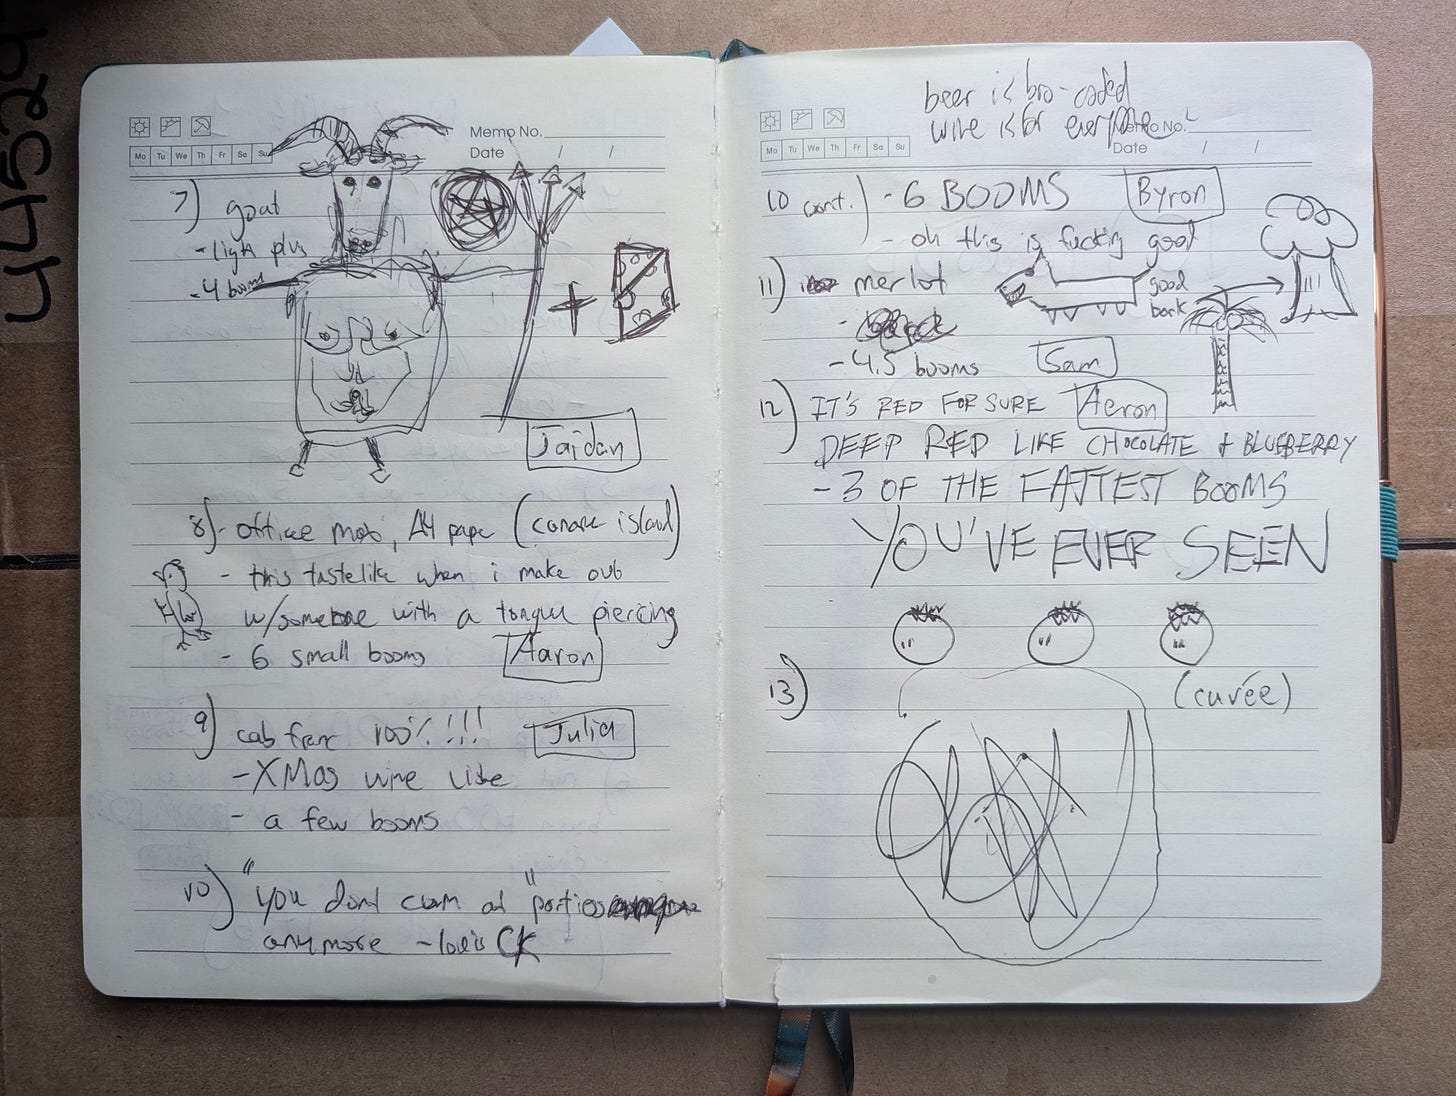 44524
Memo No.
Date / /
Mo Tu We Th Fr Sa Su
7) goat
- light plus
- 4 booms
Jaidan
8) - office mob, A4 paper
- this taste like when i make out
w/ someone with a tongue piercing
- 6 small booms
Aaron
9) cab franc 100%!!!
Julia
- XMas wine vibe
- a few booms
10) "you dont cum at" parties
anymore - louis CK
beer is bro-coded
wine is for everyone
Memo No.
Date / /
Mo Tu We Th Fr Sa Su
10 cont.) - 6 BOOMS
Byron
- oh this is fucking good
11) merlot
good
bark
- 4.5 booms
Sam
12) IT'S RED FOR SURE
Aeron
DEEP RED LIKE CHOCOLATE + BLUEBERRY
- 3 OF THE FATTEST BOOMS
YOU'VE EVER SEEN
13)
(cuvée)